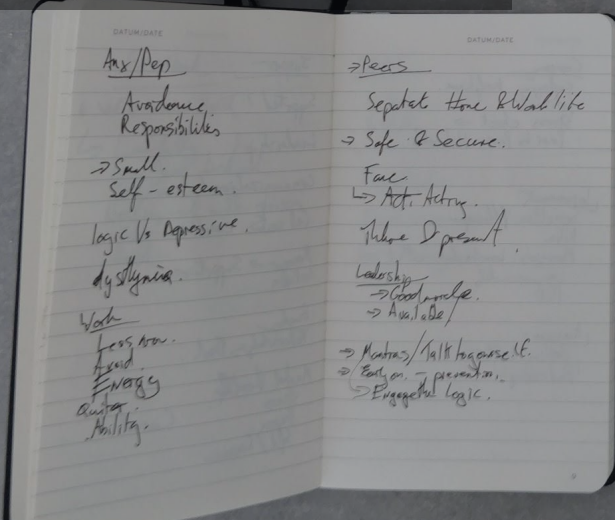 DATUM/DATE
Anx/Dep
Avoidance
Responsibilities
→ Small.
Self-esteem.
logic Vs Depressive.
dysthymia.
Work
Less now.
Avoid
Energy
Quiter.
Ability.
DATUM/DATE
→ Peers
Separate Home & Work life
→ Safe & Secure.
↳ Act. Acting.
present.
Leadership
→ Good
→ Available
→ Mantras/Talk to yourself.
→ Early on. - prevention.
→ Engage the logic.